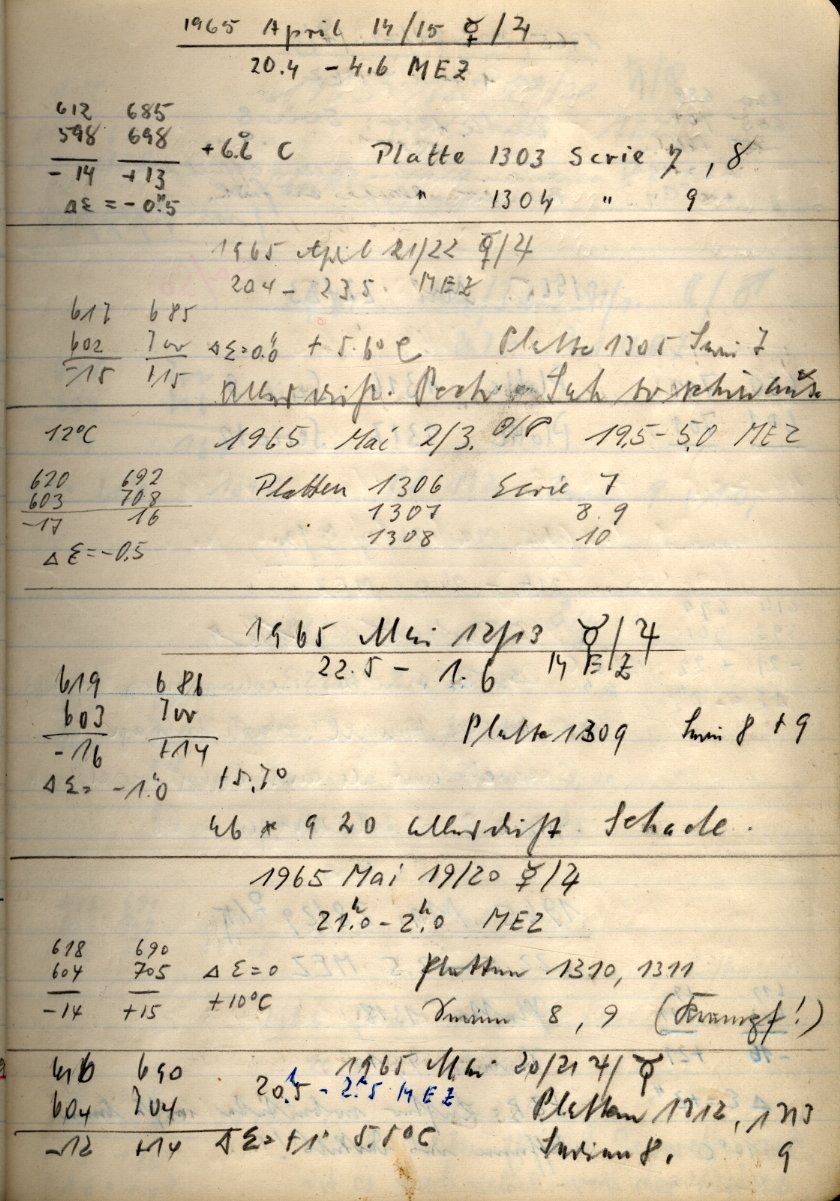 1965 April 14/15 ☿/♃
20.4 - 4.6 MEZ
612 685
598 698 +6.6° C Platte 1303 Serie 7, 8
-14 +13
Δε = -0".5 " 1304 " 9
1965 April 21/22 ☿/♃
20.4 - 23.5 MEZ
617 685
602 700 Δε=0".0 + 5.6° C Platte 1305 Serie 7
-15 +15
12°C 1965 Mai 2/3. 19.5-5.0 MEZ
620 692 Platten 1306 Serie 7
603 708 1307 8.9
-17 16 1308 10
Δε=-0.5
1965 Mai 12/13 ☿/♃
22.5 - 1.6 MEZ
619 686
603 700 Platte 1309 Serie 8 + 9
-16 +14
Δε= -1".0 +5.7°
ab * 920 Schade.
1965 Mai 19/20 ☿/♃
21ʰ.0 - 2ʰ.0 MEZ
618 690
604 705 Δε=0 Platten 1310, 1311
-14 +15 +10°C Serien 8, 9 (Krampf!)
616 690 1965 Mai 20/21 ♃/♀
20ʰ.5 - 2ʰ.5 MEZ
604 704 Platten 1312, 1313
-12 +14 Δε=+1" 5.8°C Serien 8. 9